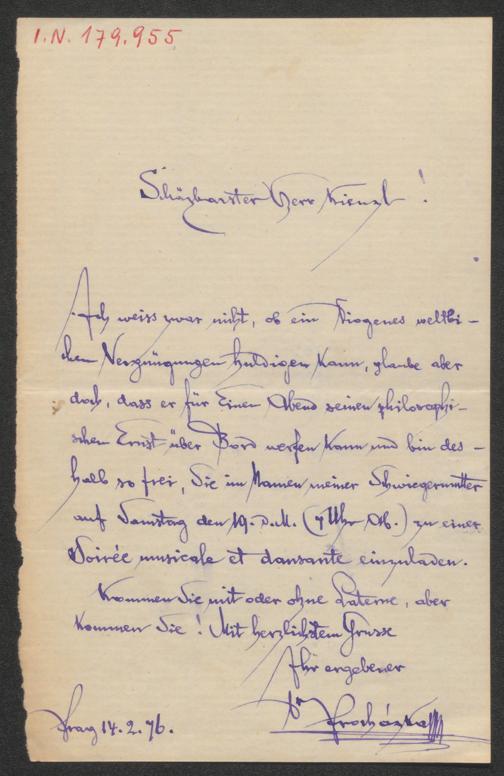 I.N. 179.955
Schäzbarster Herr Kienzl!
Ich weiss zwar nicht, ob ein Diogenes weltli-
chen Vergnügungen huldigen kann, glaube aber
doch, dass er für Einen Abend seinen philosophi-
schen Ernst über Bord werfen kann und bin des-
halb so frei, Sie im Namen meiner Schwiegermutter
auf Samstag den 19. d.M. (7 Uhr Ab.) zu einer
Soirée musicale et dansante einzuladen.
Kommen Sie mit oder ohne Laterne, aber
kommen Sie! Mit herzlichstem Grusse
Ihr ergebener
Dr Procházka
Prag 14.2.76.